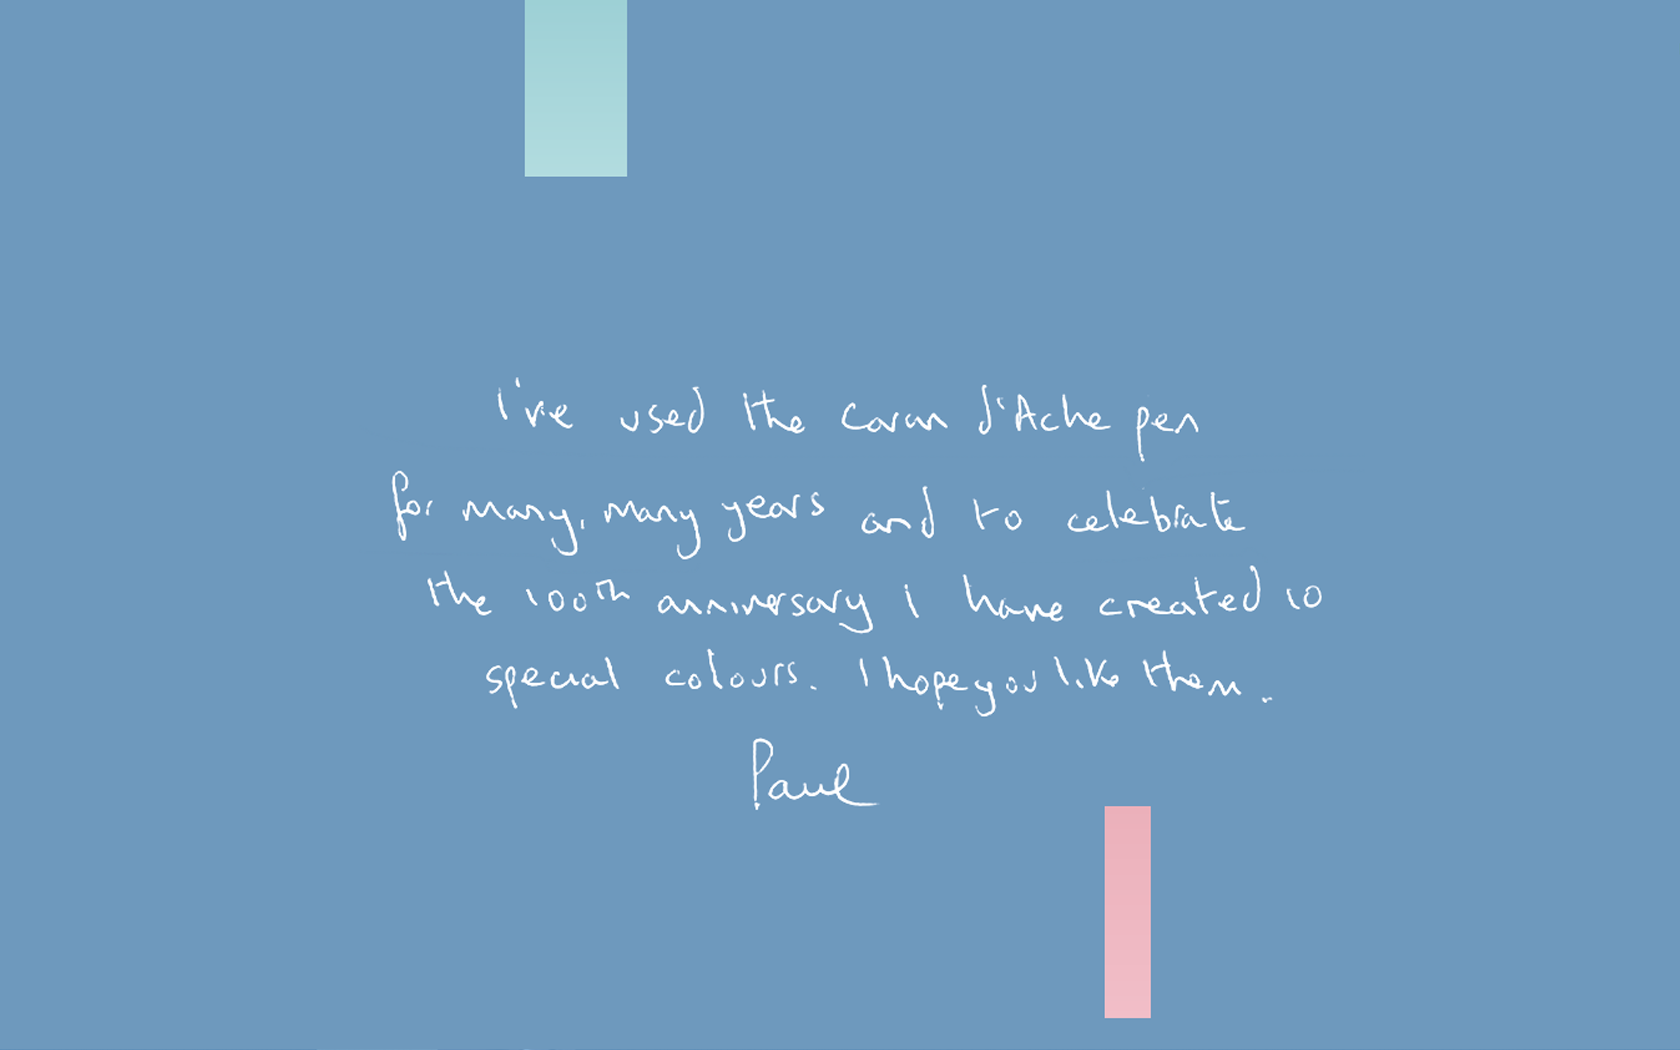 I've used the Caran d'Ache pen
for many, many years and to celebrate
the 100th anniversary I have created 10
special colours. I hope you like them.
Paul